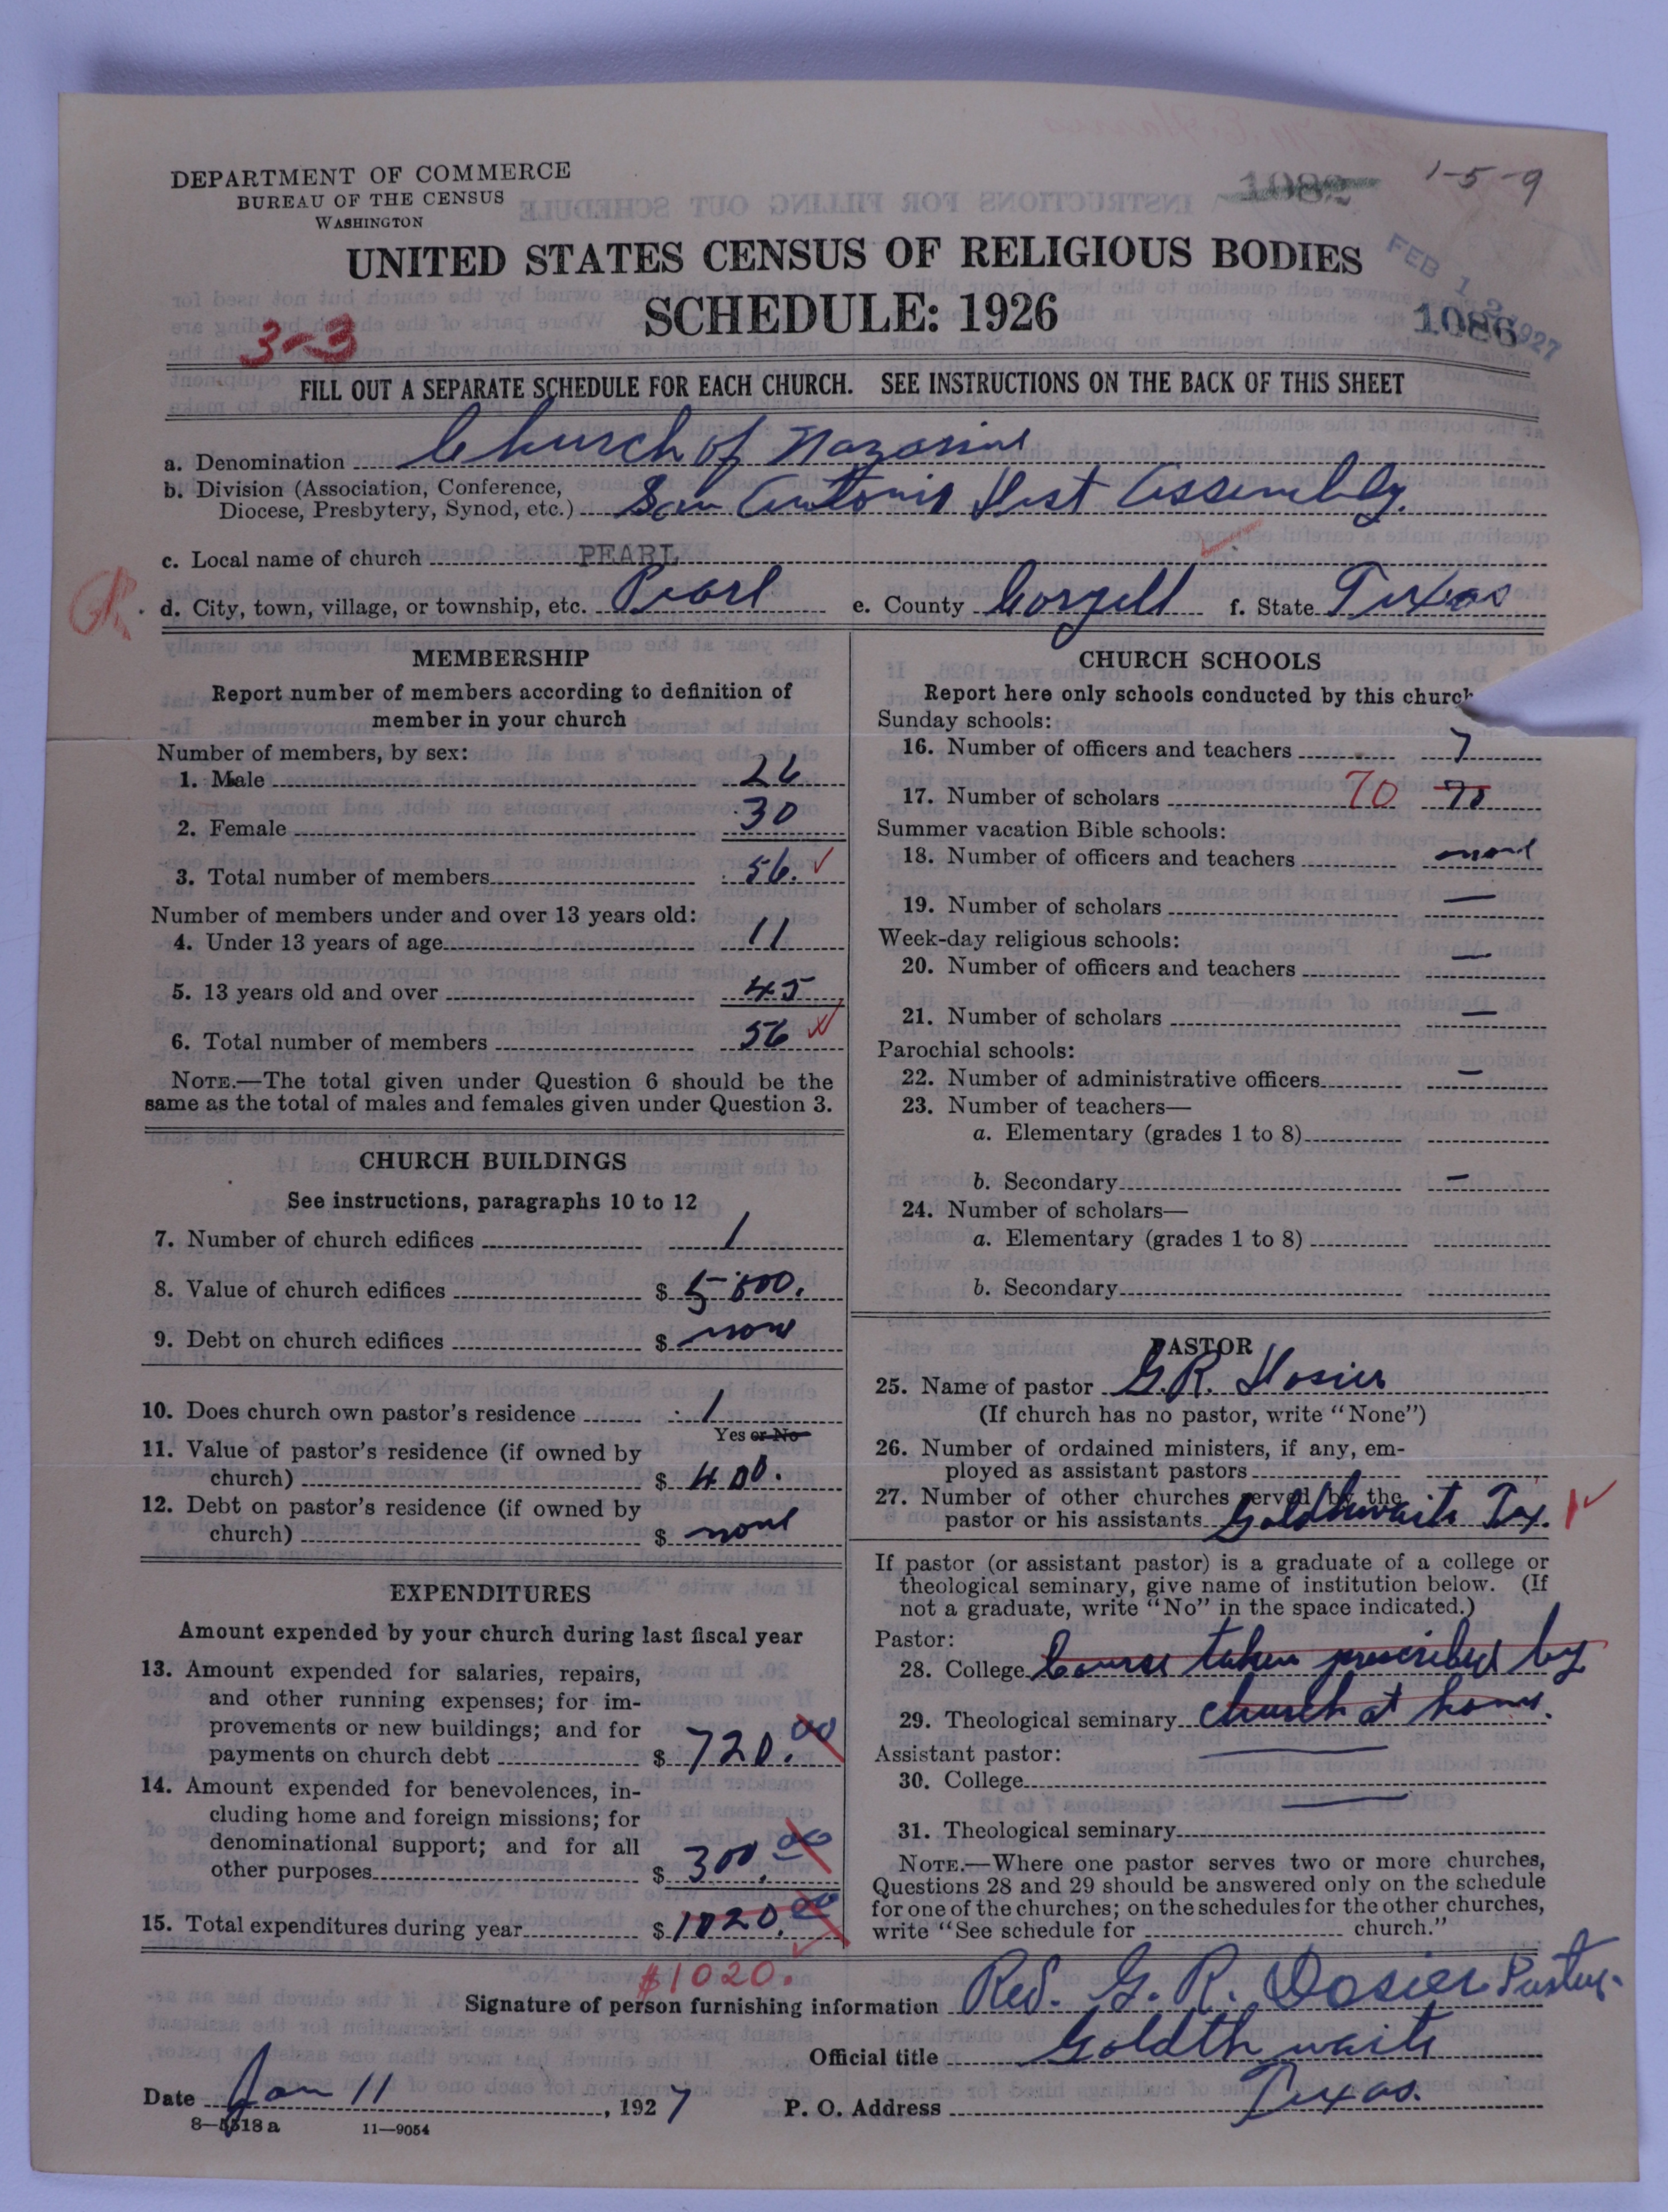 1-5-9
DEPARTMENT OF COMMERCE
BUREAU OF THE CENSUS
WASHINGTON
1082
UNITED STATES CENSUS OF RELIGIOUS BODIES
FEB 12 1927
SCHEDULE: 1926
1086
3-3
FILL OUT A SEPARATE SCHEDULE FOR EACH CHURCH. SEE INSTRUCTIONS ON THE BACK OF THIS SHEET
a. Denomination Church of Nazarine
b. Division (Association, Conference,
Diocese, Presbytery, Synod, etc.) San Antonio Dist Assembly.
c. Local name of church PEARL
d. City, town, village, or township, etc. Pearl e. County Coryell f. State Texas
MEMBERSHIP
Report number of members according to definition of
member in your church
Number of members, by sex:
1. Male 26
2. Female 30
3. Total number of members 56.
Number of members under and over 13 years old:
4. Under 13 years of age 11
5. 13 years old and over 45
6. Total number of members 56
NOTE.—The total given under Question 6 should be the
same as the total of males and females given under Question 3.
CHURCH BUILDINGS
See instructions, paragraphs 10 to 12
7. Number of church edifices 1
8. Value of church edifices $ 5000.
9. Debt on church edifices $ none
10. Does church own pastor's residence 1
Yes or No
11. Value of pastor's residence (if owned by
church) $ 400.
12. Debt on pastor's residence (if owned by
church) $ none
EXPENDITURES
Amount expended by your church during last fiscal year
13. Amount expended for salaries, repairs,
and other running expenses; for im-
provements or new buildings; and for
payments on church debt $ 720.00
14. Amount expended for benevolences, in-
cluding home and foreign missions; for
denominational support; and for all
other purposes $ 300.00
15. Total expenditures during year $ 1020.00
$1020.
CHURCH SCHOOLS
Report here only schools conducted by this church
Sunday schools:
16. Number of officers and teachers 7
17. Number of scholars 70 70
Summer vacation Bible schools:
18. Number of officers and teachers none
19. Number of scholars —
Week-day religious schools:
20. Number of officers and teachers —
21. Number of scholars —
Parochial schools:
22. Number of administrative officers —
23. Number of teachers—
a. Elementary (grades 1 to 8)
b. Secondary —
24. Number of scholars—
a. Elementary (grades 1 to 8)
b. Secondary
PASTOR
25. Name of pastor G.R. Dosier
(If church has no pastor, write "None")
26. Number of ordained ministers, if any, em-
ployed as assistant pastors
27. Number of other churches served by the
pastor or his assistants Goldthwaite Tex. 1
If pastor (or assistant pastor) is a graduate of a college or
theological seminary, give name of institution below. (If
not a graduate, write "No" in the space indicated.)
Pastor:
28. College Course taken prescribed by
29. Theological seminary church at home.
Assistant pastor:
30. College
31. Theological seminary
NOTE.—Where one pastor serves two or more churches,
Questions 28 and 29 should be answered only on the schedule
for one of the churches; on the schedules for the other churches,
write "See schedule for church."
Signature of person furnishing information Rev. G. R. Dosier Pastor
Official title Goldthwaite
Date Jan 11, 1927 P. O. Address Texas.
8—5518 a 11—9054